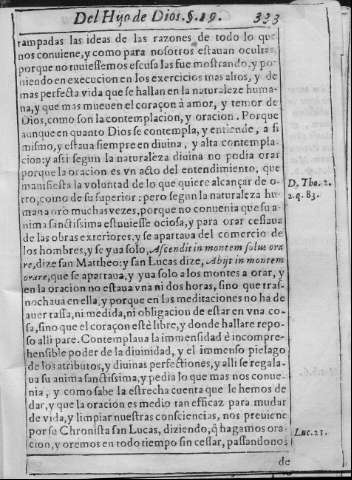 Del Hijo de Dios. §. 19. 333
rampadas las ideas de las razones de todo lo que
nos conuiene, y como para nosotros estauan ocultas,
porque no tuuiessemos escusa las fue mostrando, y po-
niendo en execucion en los exercicios mas altos, y de
mas perfecta vida que se hallan en la naturaleze huma-
na, y que mas mueuen el coraçon à amor, y temor de
Dios, como son la contemplacion, y oracion. Porque
aunque en quanto Dios se contempla, y entiende, a si
mismo, y estaua siempre en diuina, y alta contempla-
cion: y assi segun la naturaleza diuina no podia orar
porque la oracion es vn acto del entendimiento, que
manifiesta la voluntad de lo que quiere alcançar de o-
tro, como de su superior: pero segun la naturaleza hu-
mana oró muchas vezes, porque no conuenia que su a-
nima santissima estuuiesse ociosa, y para orar cessaua
de las obras exteriores, y se apartaua del comercio de
los hombres, y se yua solo, Ascendit in montem solus ora
re, dize san Mattheo: y san Lucas dize, Abijt in montem
orare, que se apartaua, y yua solo a los montes a orar, y
en la oracion no estaua vna ni dos horas, sino que tras-
nochaua en ella, y porque en las meditaciones no ha de
auer tassa, ni medida, ni obligacion de estar en vna co-
sa, sino que el coraçon estè libre, y donde hallare repo-
so alli pare. Contemplaua la immensidad è incompre-
hensible poder de la diuinidad, y el immenso pielago
de los atributos, y diuinas perfectiones, y alli se regala-
ua su anima sanctissima, y pedia lo que mas nos conue-
nia, y como sabe la estrecha cuenta que le hemos de
dar, y que la oracion es medio tan efficaz para mudar
de vida, y limpiar nuestras consciencias, nos preuiene
por se Chronista san Lucas, diziendo, q̃ hagamos ora-
cion, y oremos en todo tiempo sin cessar, passandonos
de
D. Tho. 2.
2. q. 83.
Luc. 21.